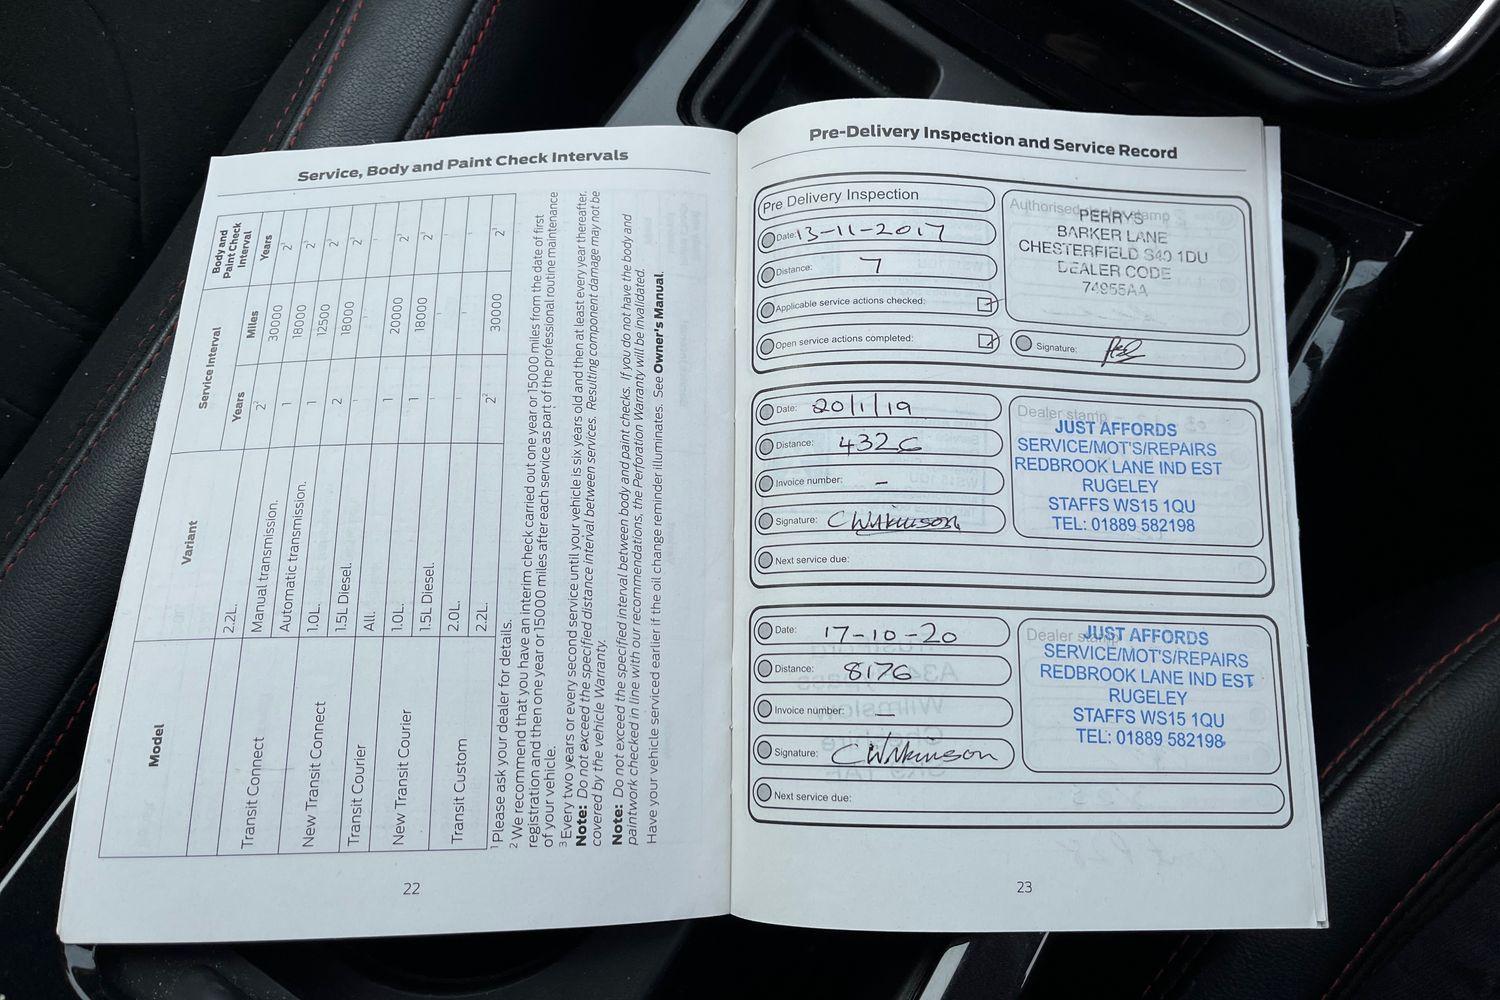 Service, Body and Paint Check Intervals
Model
Variant
Service Interval
Body and
Paint Check
Interval
Years
Miles
Years
2.2L.
Transit Connect
Manual transmission.
2²
30000
2³
Automatic transmission.
1
18000
2³
New Transit Connect
1.0L.
1
12500
2³
1.5L Diesel.
2
18000
2³
Transit Courier
All.
New Transit Courier
1.0L.
1
20000
2³
1.5L Diesel.
1
18000
2³
Transit Custom
2.0L.
2.2L.
2²
30000
2³
¹ Please ask your dealer for details.
² We recommend that you have an interim check carried out one year or 15000 miles from the date of first
registration and then one year or 15000 miles after each service as part of the professional routine maintenance
of your vehicle.
³ Every two years or every second service until your vehicle is six years old and then at least every year thereafter.
Note: Do not exceed the specified distance interval between services. Resulting component damage may not be
covered by the vehicle Warranty.
Note: Do not exceed the specified interval between body and paint checks. If you do not have the body and
paintwork checked in line with our recommendations, the Perforation Warranty will be invalidated.
Have your vehicle serviced earlier if the oil change reminder illuminates. See Owner's Manual.
22
Pre-Delivery Inspection and Service Record
Pre Delivery Inspection
Date: 13-11-2017
Distance: 7
Applicable service actions checked:
Open service actions completed:
Authorised dealer stamp
PERRYS
BARKER LANE
CHESTERFIELD S40 1DU
DEALER CODE
74955AA
Signature:
Date: 20/1/19
Distance: 4326
Invoice number: –
Signature: CWilkinson
Next service due:
Dealer stamp
JUST AFFORDS
SERVICE/MOT'S/REPAIRS
REDBROOK LANE IND EST
RUGELEY
STAFFS WS15 1QU
TEL: 01889 582198
Date: 17-10-20
Distance: 8176
Invoice number: –
Signature: CWilkinson
Next service due:
Dealer stamp
JUST AFFORDS
SERVICE/MOT'S/REPAIRS
REDBROOK LANE IND EST
RUGELEY
STAFFS WS15 1QU
TEL: 01889 582198
23